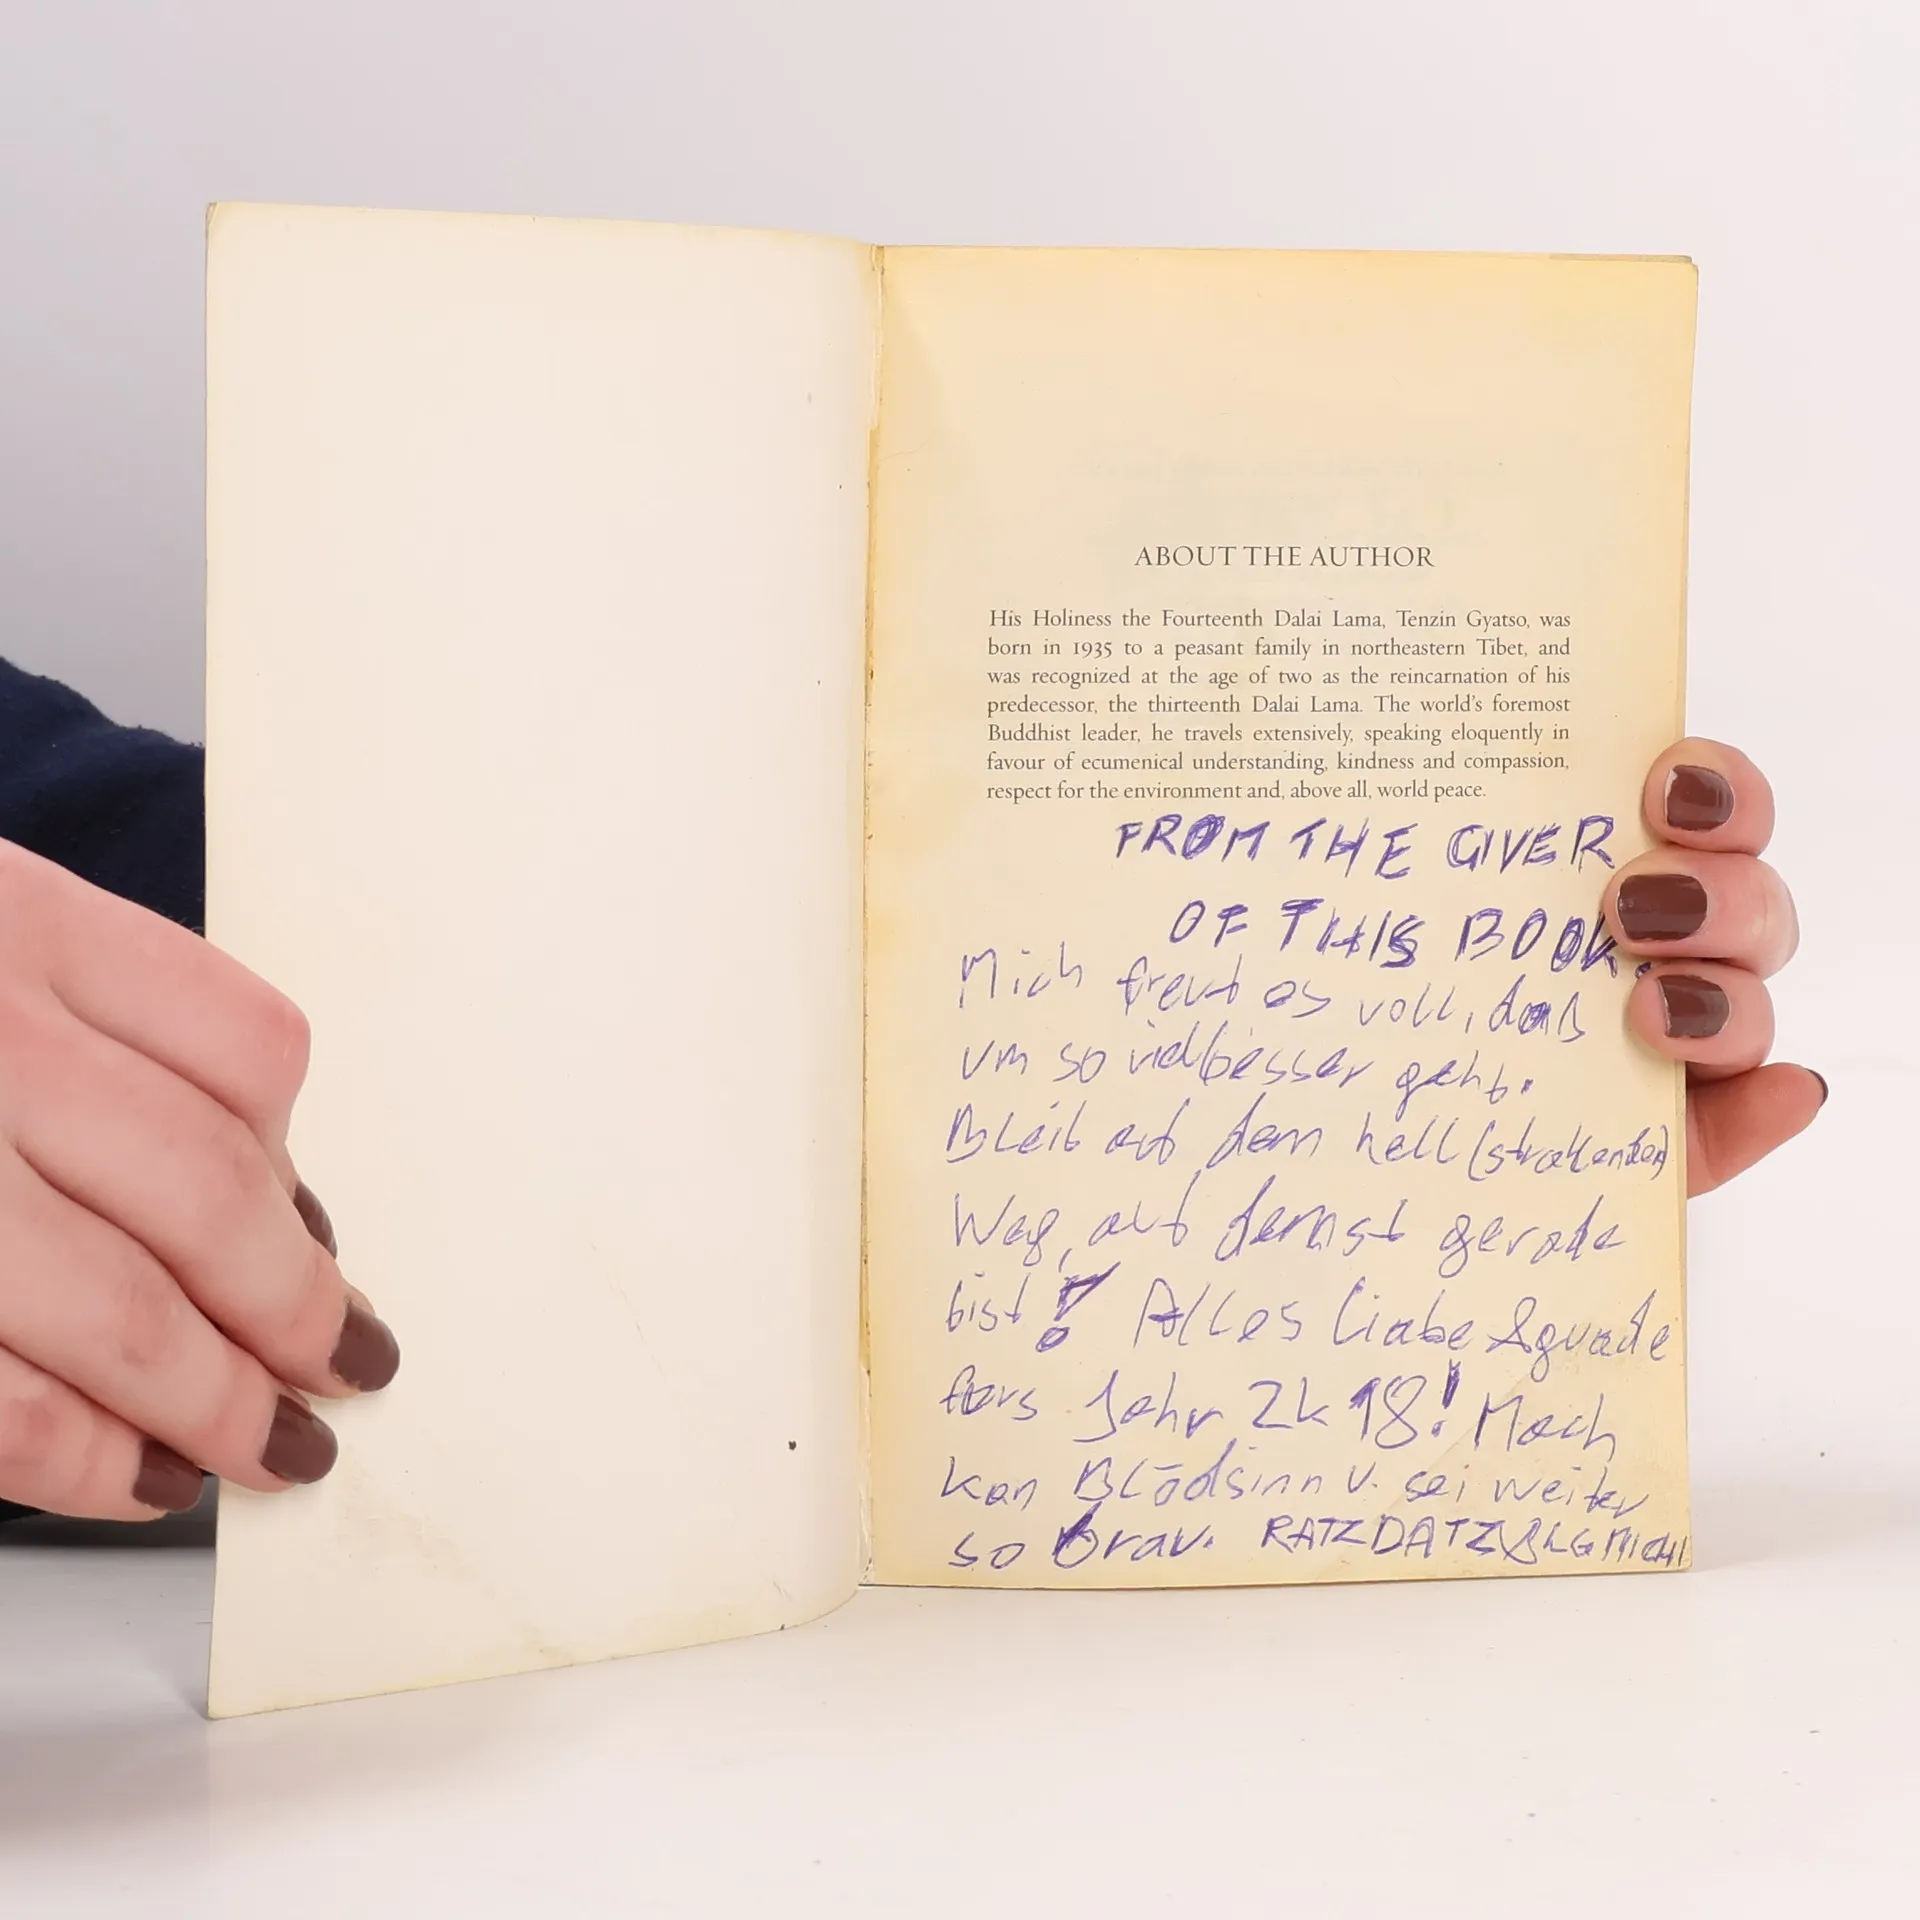 ABOUT THE AUTHOR
His Holiness the Fourteenth Dalai Lama, Tenzin Gyatso, was
born in 1935 to a peasant family in northeastern Tibet, and
was recognized at the age of two as the reincarnation of his
predecessor, the thirteenth Dalai Lama. The world's foremost
Buddhist leader, he travels extensively, speaking eloquently in
favour of ecumenical understanding, kindness and compassion,
respect for the environment and, above all, world peace.
FROM THE GIVER
OF THIS BOOK.
Mich freut es voll, daß
um so vielbesser geht.
Bleib auf dem hell (strahlenden)
Weg, auf dem gerade
bist! Alles Liebe & gerade
fürs Jahr 2k18! Mach
kan Blödsinn u. sei weiter
so brav. RATZDATZ & LG MICHI